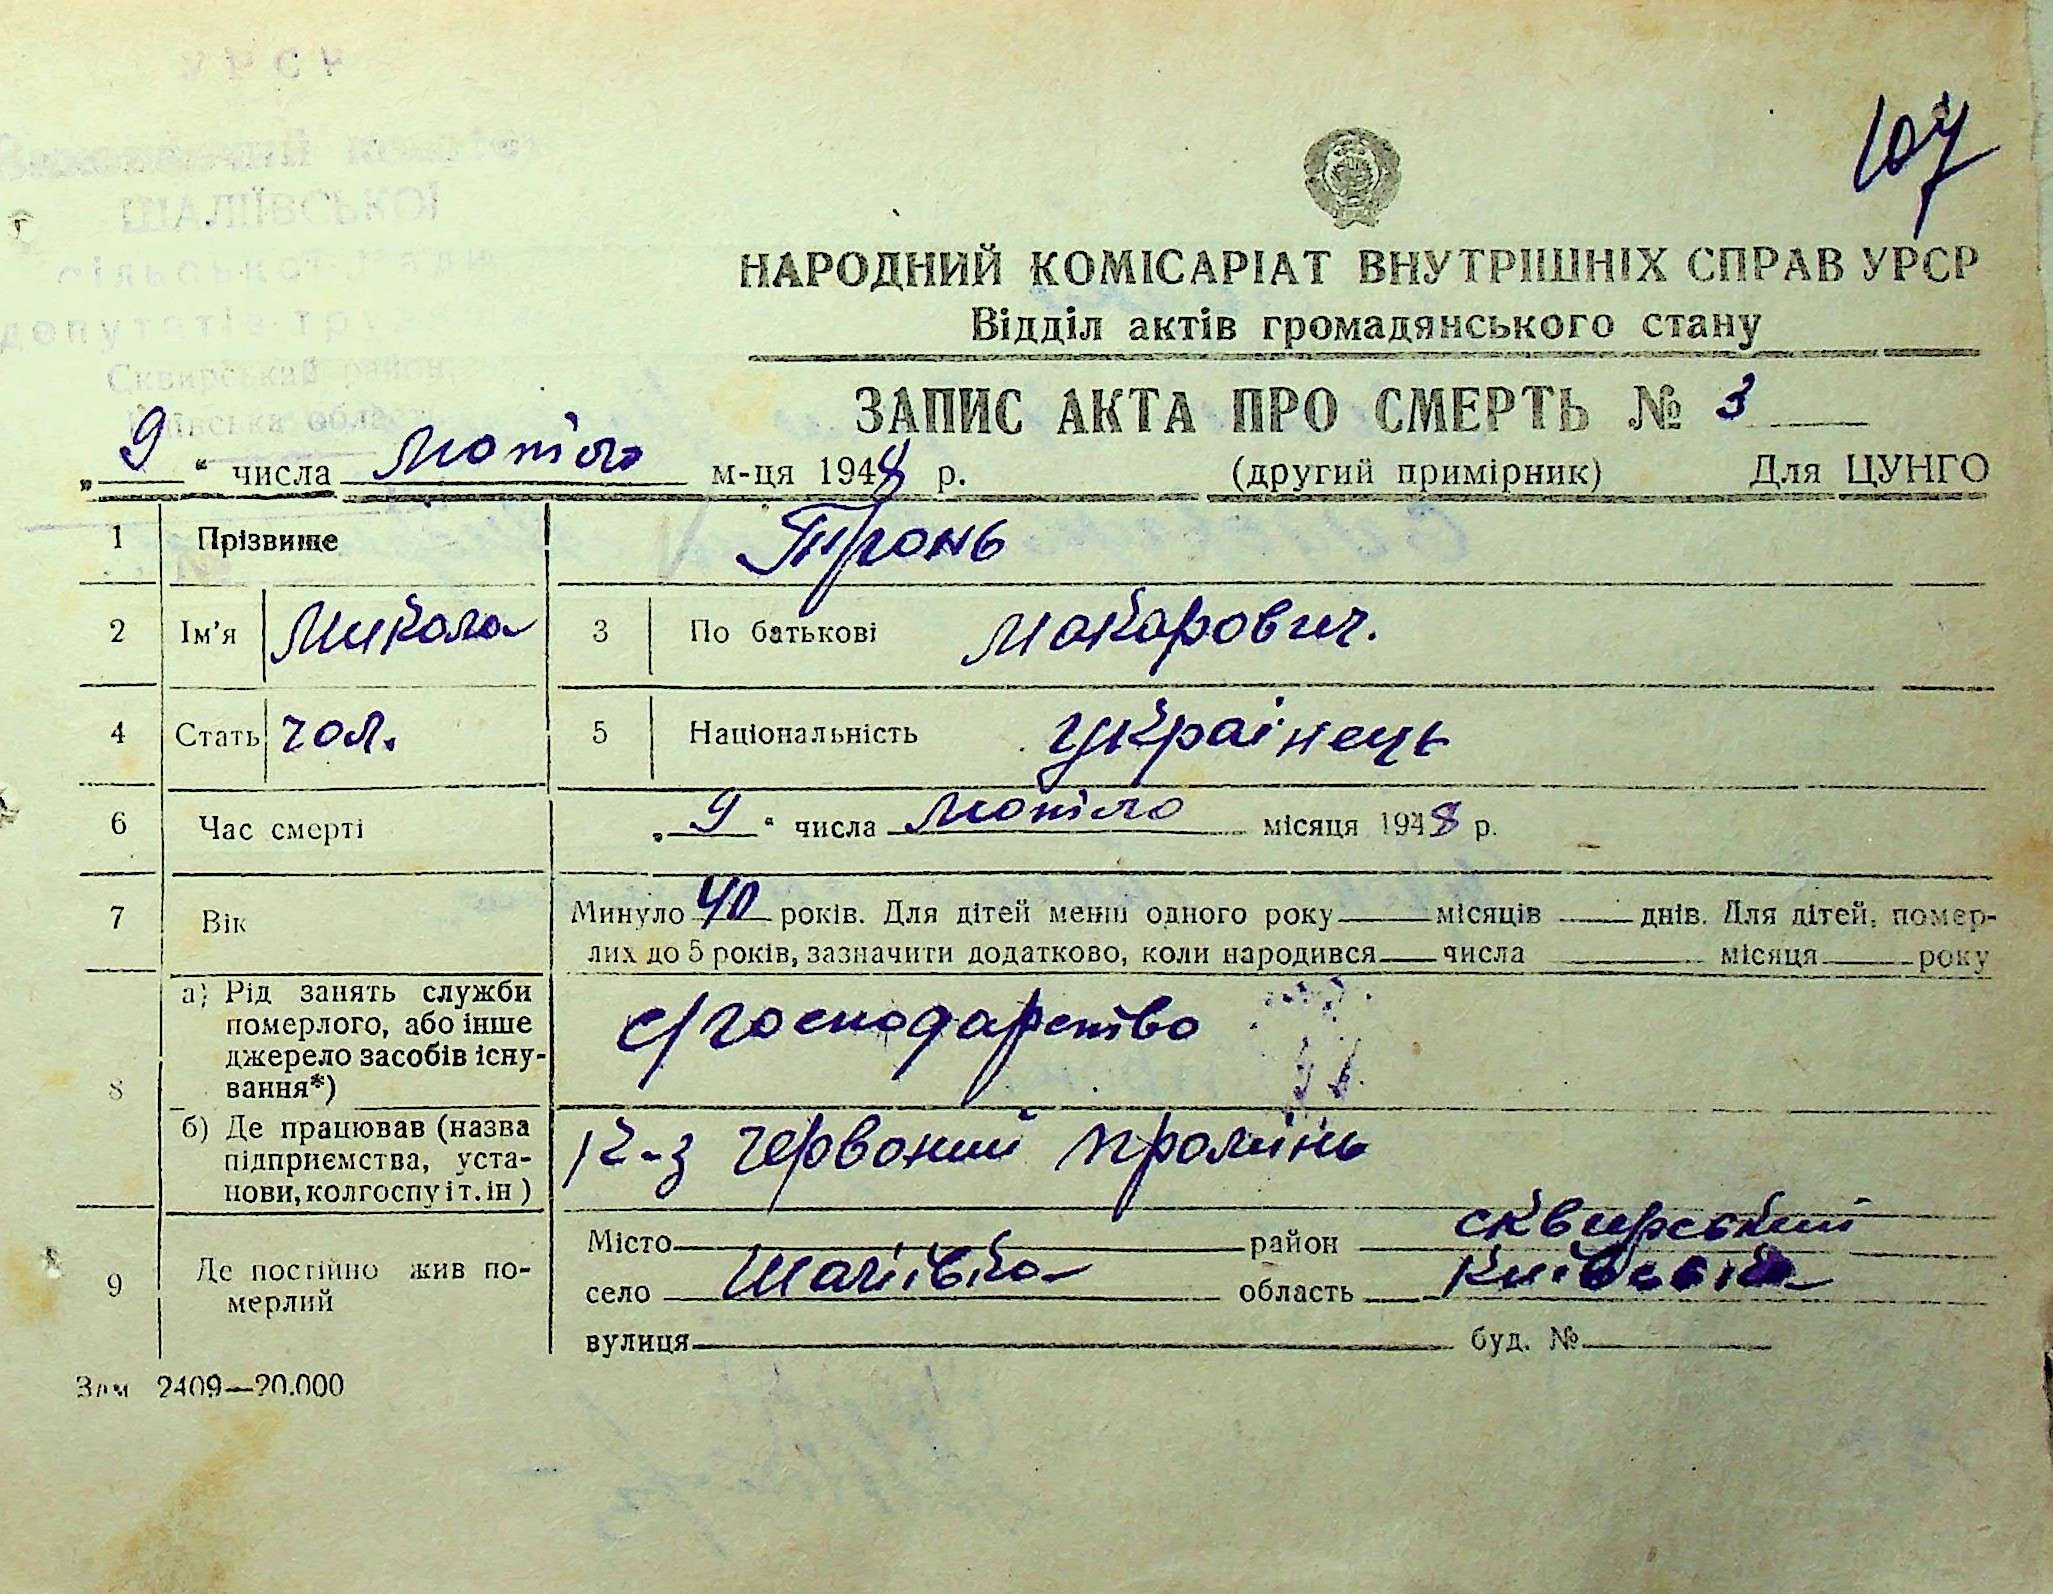 УРСР
Виконавчий комітет
ШАЛІЇВСЬКОЇ
сільської ради
депутатів
Сквирський район,
Київська область
107
НАРОДНИЙ КОМІСАРІАТ ВНУТРІШНІХ СПРАВ УРСР
Відділ актів громадянського стану
ЗАПИС АКТА ПРО СМЕРТЬ № 3
„9“ числа лютого м-ця 1948 р. (другий примірник) Для ЦУНГО
1 Прізвище Тронь
2 Ім’я Микола 3 По батькові Макарович.
4 Стать чол. 5 Національність українець
6 Час смерті „9“ числа лютого місяця 1948 р.
7 Вік Минуло 40 років. Для дітей менш одного року місяців днів. Для дітей, помер-
лих до 5 років, зазначити додатково, коли народився числа місяця року
8 а) Рід занять служби
померлого, або інше
джерело засобів існу-
вання*)
с/господарство
б) Де працював (назва
підприємства, уста-
нови, колгоспу і т. ін)
к-з Червоний промінь
9 Де постійно жив по-
мерлий
Місто район сквирський
село Шаліївка область Київська
вулиця буд. №
Зам 2409—20.000